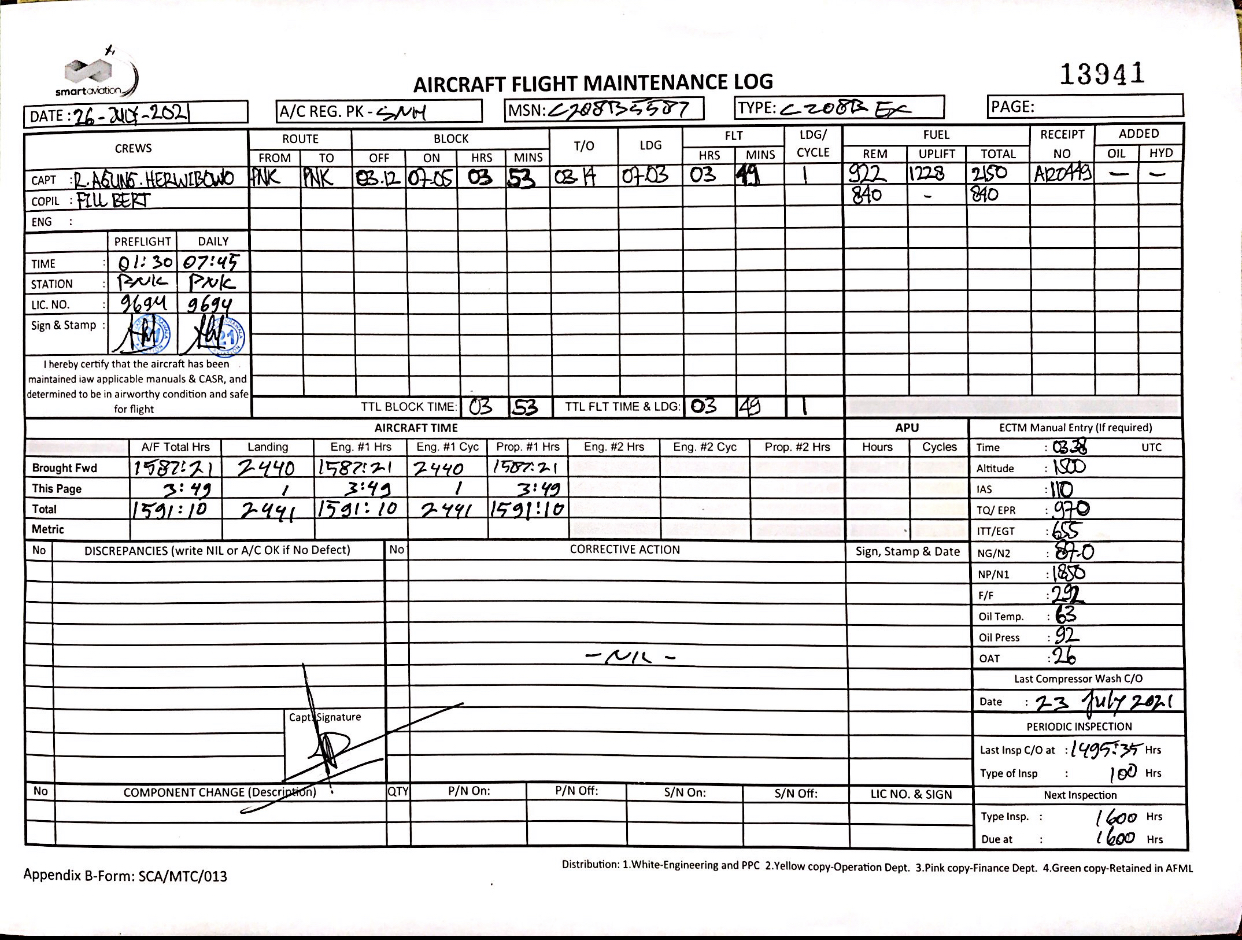 smartaviation
AIRCRAFT FLIGHT MAINTENANCE LOG
13941
DATE : 26 - JULY - 2021 A/C REG. PK - SNH MSN: C208B5587 TYPE: C208B EX PAGE:
CREWS ROUTE BLOCK T/O LDG FLT LDG/ CYCLE FUEL RECEIPT NO ADDED
FROM TO OFF ON HRS MINS HRS MINS REM UPLIFT TOTAL OIL HYD
CAPT : R. AGUNG. HERWIBOWO PNK PNK 03.12 07.05 03 53 03.14 07.03 03 49 1 922 1228 2150 A20449 — —
COPIL : FILLBERT 840 - 840
ENG :
PREFLIGHT DAILY
TIME : 01:30 07:45
STATION : PNK PNK
LIC. NO. : 9694 9694
Sign & Stamp :
I hereby certify that the aircraft has been
maintained iaw applicable manuals & CASR, and
determined to be in airworthy condition and safe
for flight
TTL BLOCK TIME: 03 53 TTL FLT TIME & LDG: 03 49 1
AIRCRAFT TIME APU ECTM Manual Entry (If required)
A/F Total Hrs Landing Eng. #1 Hrs Eng. #1 Cyc Prop. #1 Hrs Eng. #2 Hrs Eng. #2 Cyc Prop. #2 Hrs Hours Cycles Time : 03.38 UTC
Brought Fwd 1587:21 2440 1587:21 2440 1587:21 Altitude : 1500
This Page 3:49 1 3:49 1 3:49 IAS : 110
Total 1591:10 2441 1591:10 2441 1591:10 TQ/ EPR : 970
Metric ITT/EGT : 655
No DISCREPANCIES (write NIL or A/C OK if No Defect) No CORRECTIVE ACTION Sign, Stamp & Date NG/N2 : 87.0
NP/N1 : 1850
F/F : 292
Oil Temp. : 63
Oil Press : 92
- NIL - OAT : 26
Last Compressor Wash C/O
Date : 23 July 2021
Capt. Signature PERIODIC INSPECTION
Last Insp C/O at : 1495:35 Hrs
Type of Insp : 100 Hrs
No COMPONENT CHANGE (Description) QTY P/N On: P/N Off: S/N On: S/N Off: LIC NO. & SIGN Next Inspection
Type Insp. : 1600 Hrs
Due at : 1600 Hrs
Distribution: 1.White-Engineering and PPC 2.Yellow copy-Operation Dept. 3.Pink copy-Finance Dept. 4.Green copy-Retained in AFML
Appendix B-Form: SCA/MTC/013